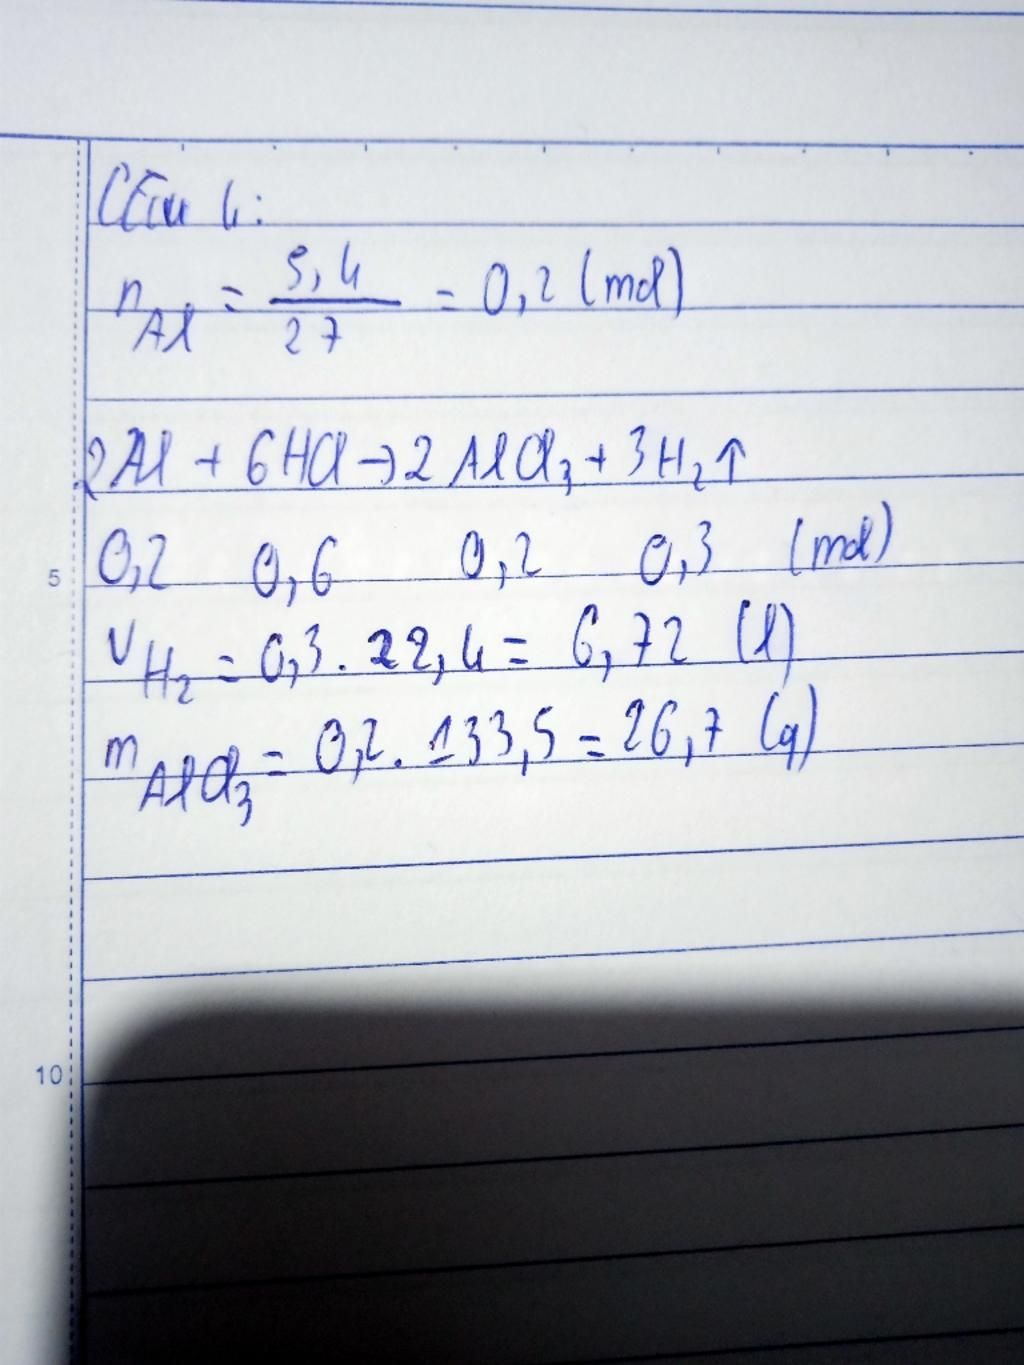 Câu 4:
n_Al = 5,4/27 = 0,2 (mol)
2Al + 6HCl → 2AlCl₃ + 3H₂↑
5
0,2 0,6 0,2 0,3 (mol)
V_H₂ = 0,3 . 22,4 = 6,72 (l)
m_AlCl₃ = 0,2 . 133,5 = 26,7 (g)
10